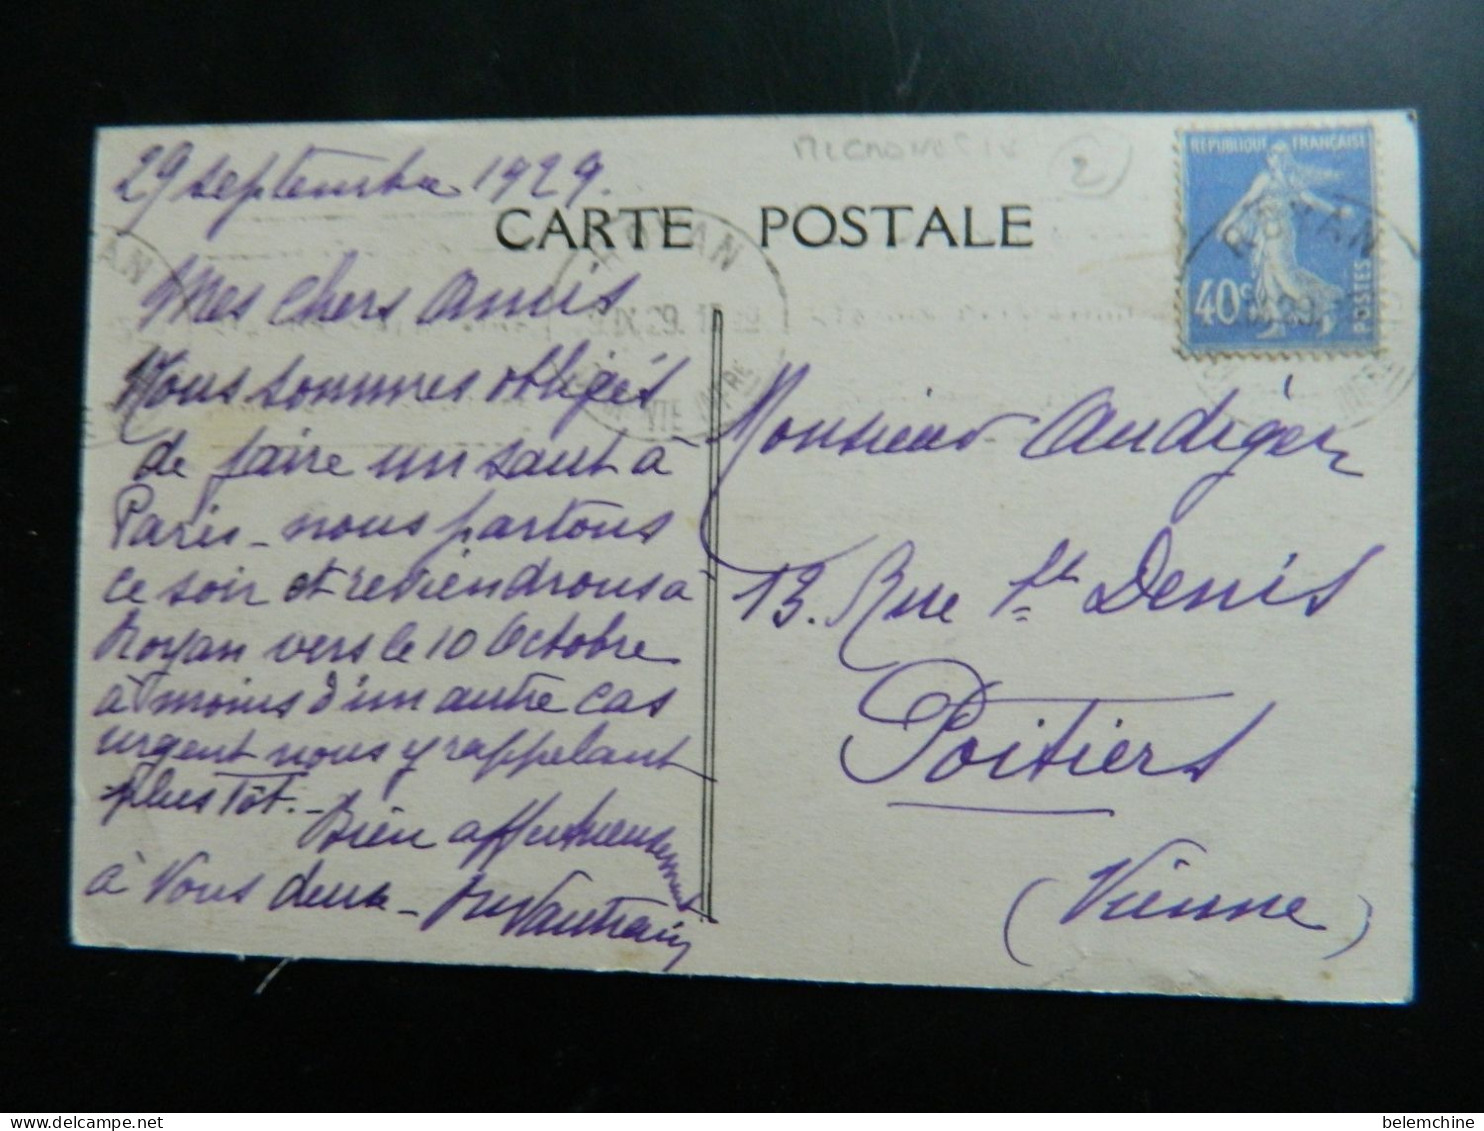 29 septembre 1929.
CARTE POSTALE
2
RÉPUBLIQUE FRANÇAISE
40c
POSTES
ROYAN
Mes chers amis
Nous sommes obligés
de faire un saut à
Paris - nous partons
ce soir et reviendrons a
Royan vers le 10 Octobre
à moins d'un autre cas
urgent nous y rappelant
plus tôt. - Bien affectueusement
à Vous deux -
Monsieur Audigér
13. Rue St Denis
Poitiers
(Vienne)
belemchine